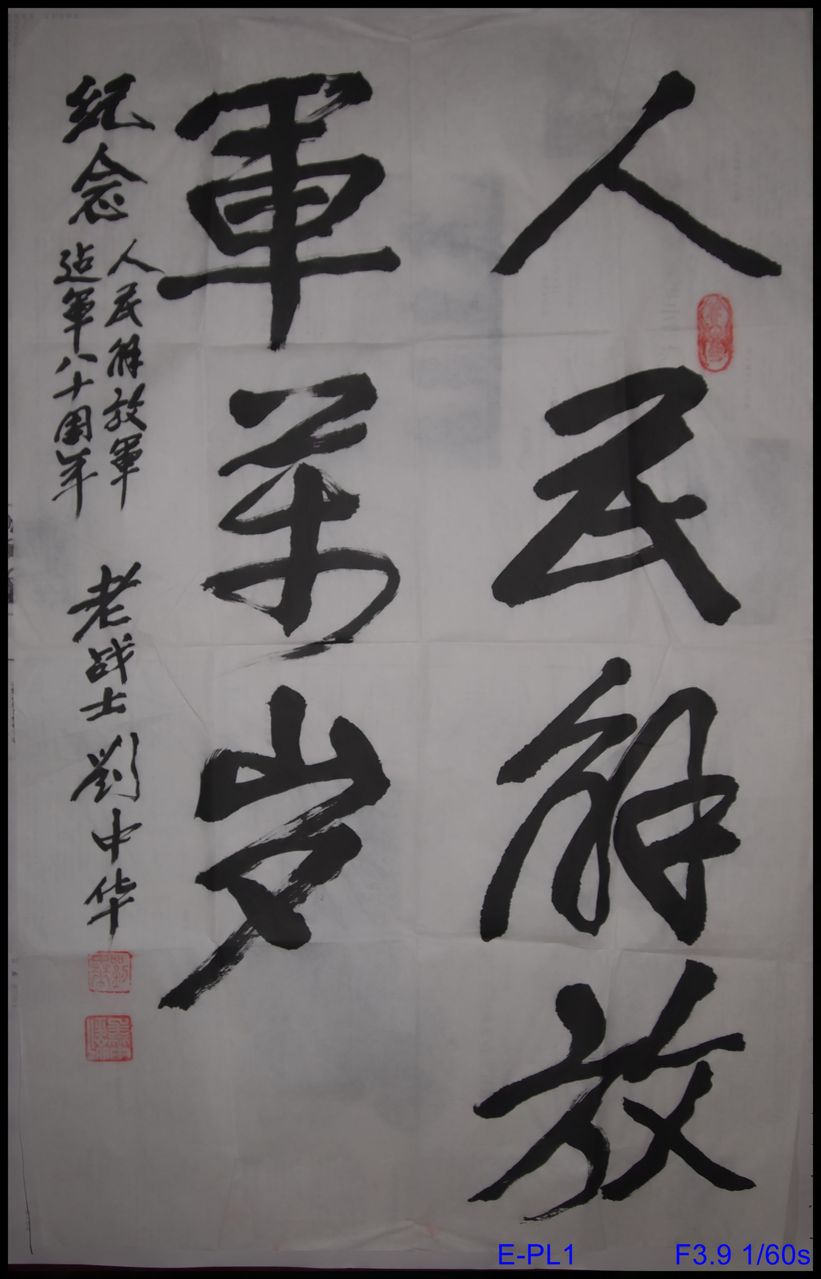 人民解放
軍万岁
纪念
人民解放軍
建軍八十周年
老战士劉中华
E-PL1 F3.9 1/60s